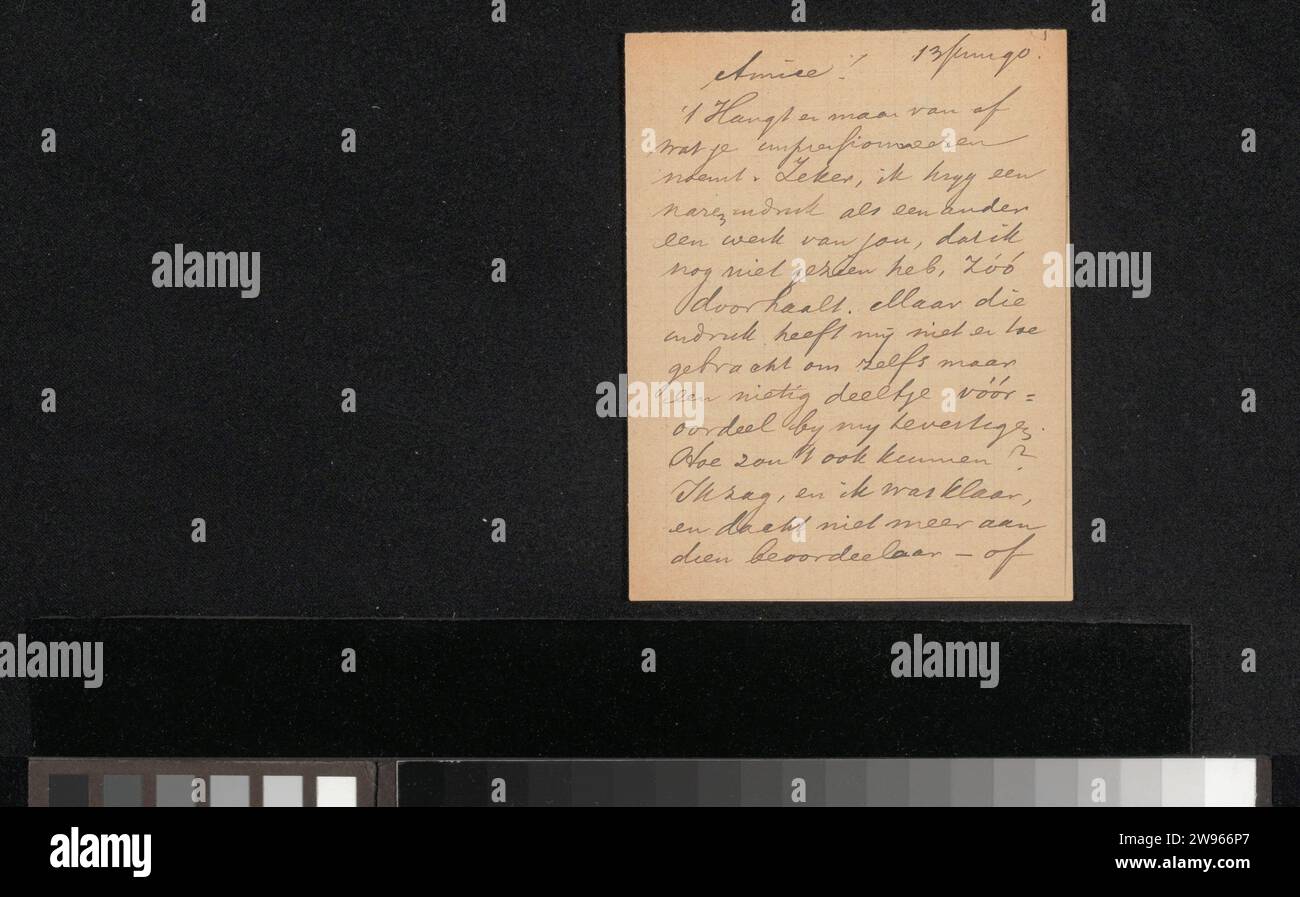 13 Juni 90.
Amice!
't Hangt er maar van af
wat je impressioneeren
noemt. Zeker, ik kryg een
naren indruk als een ander
een werk van jou, dat ik
nog niet gezien heb, zóó
doorhaalt. Maar die
indruk heeft mij niet er toe
gebracht om zelfs maar
een nietig deeltje vóór=
oordeel by my te vestigen.
Hoe zou 't ook kunnen?
Ik zag, en ik was klaar,
en dacht niet meer aan
dien beoordeelaar — of
alamy
Image ID: 2W966P7
www.alamy.com